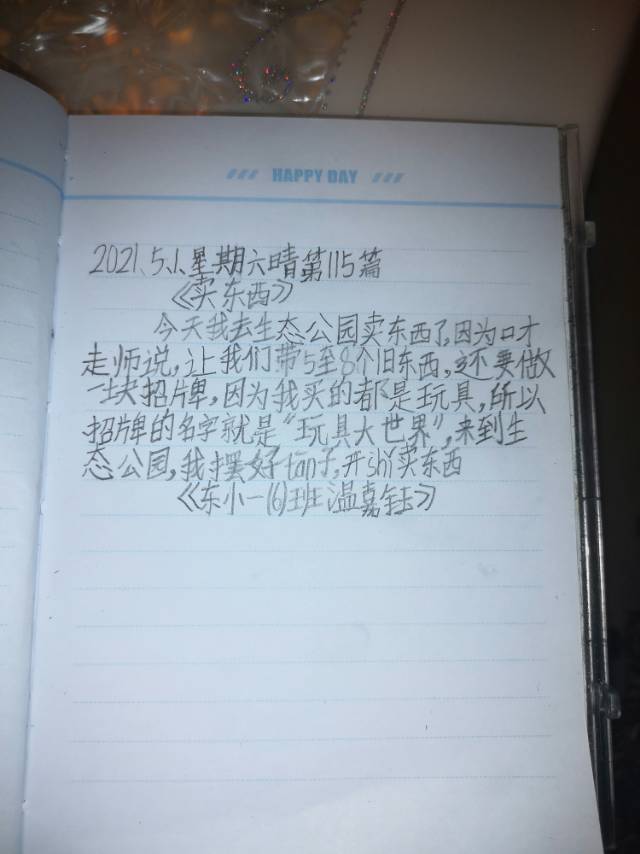 HAPPY DAY
2021.5.1.星期六晴第115篇
《卖东西》
今天我去生态公园卖东西了,因为口才
走师说,让我们带5至8个旧东西,还要做
一块招牌,因为我买的都是玩具,所以
招牌的名字就是“玩具大世界”,来到生
态公园,我摆好tān子,开shǐ卖东西
《东小一(6)班温嘉钰》